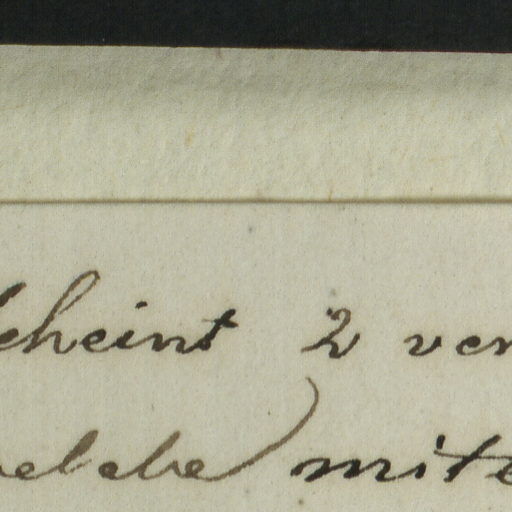 scheint 2 ver
welche mite